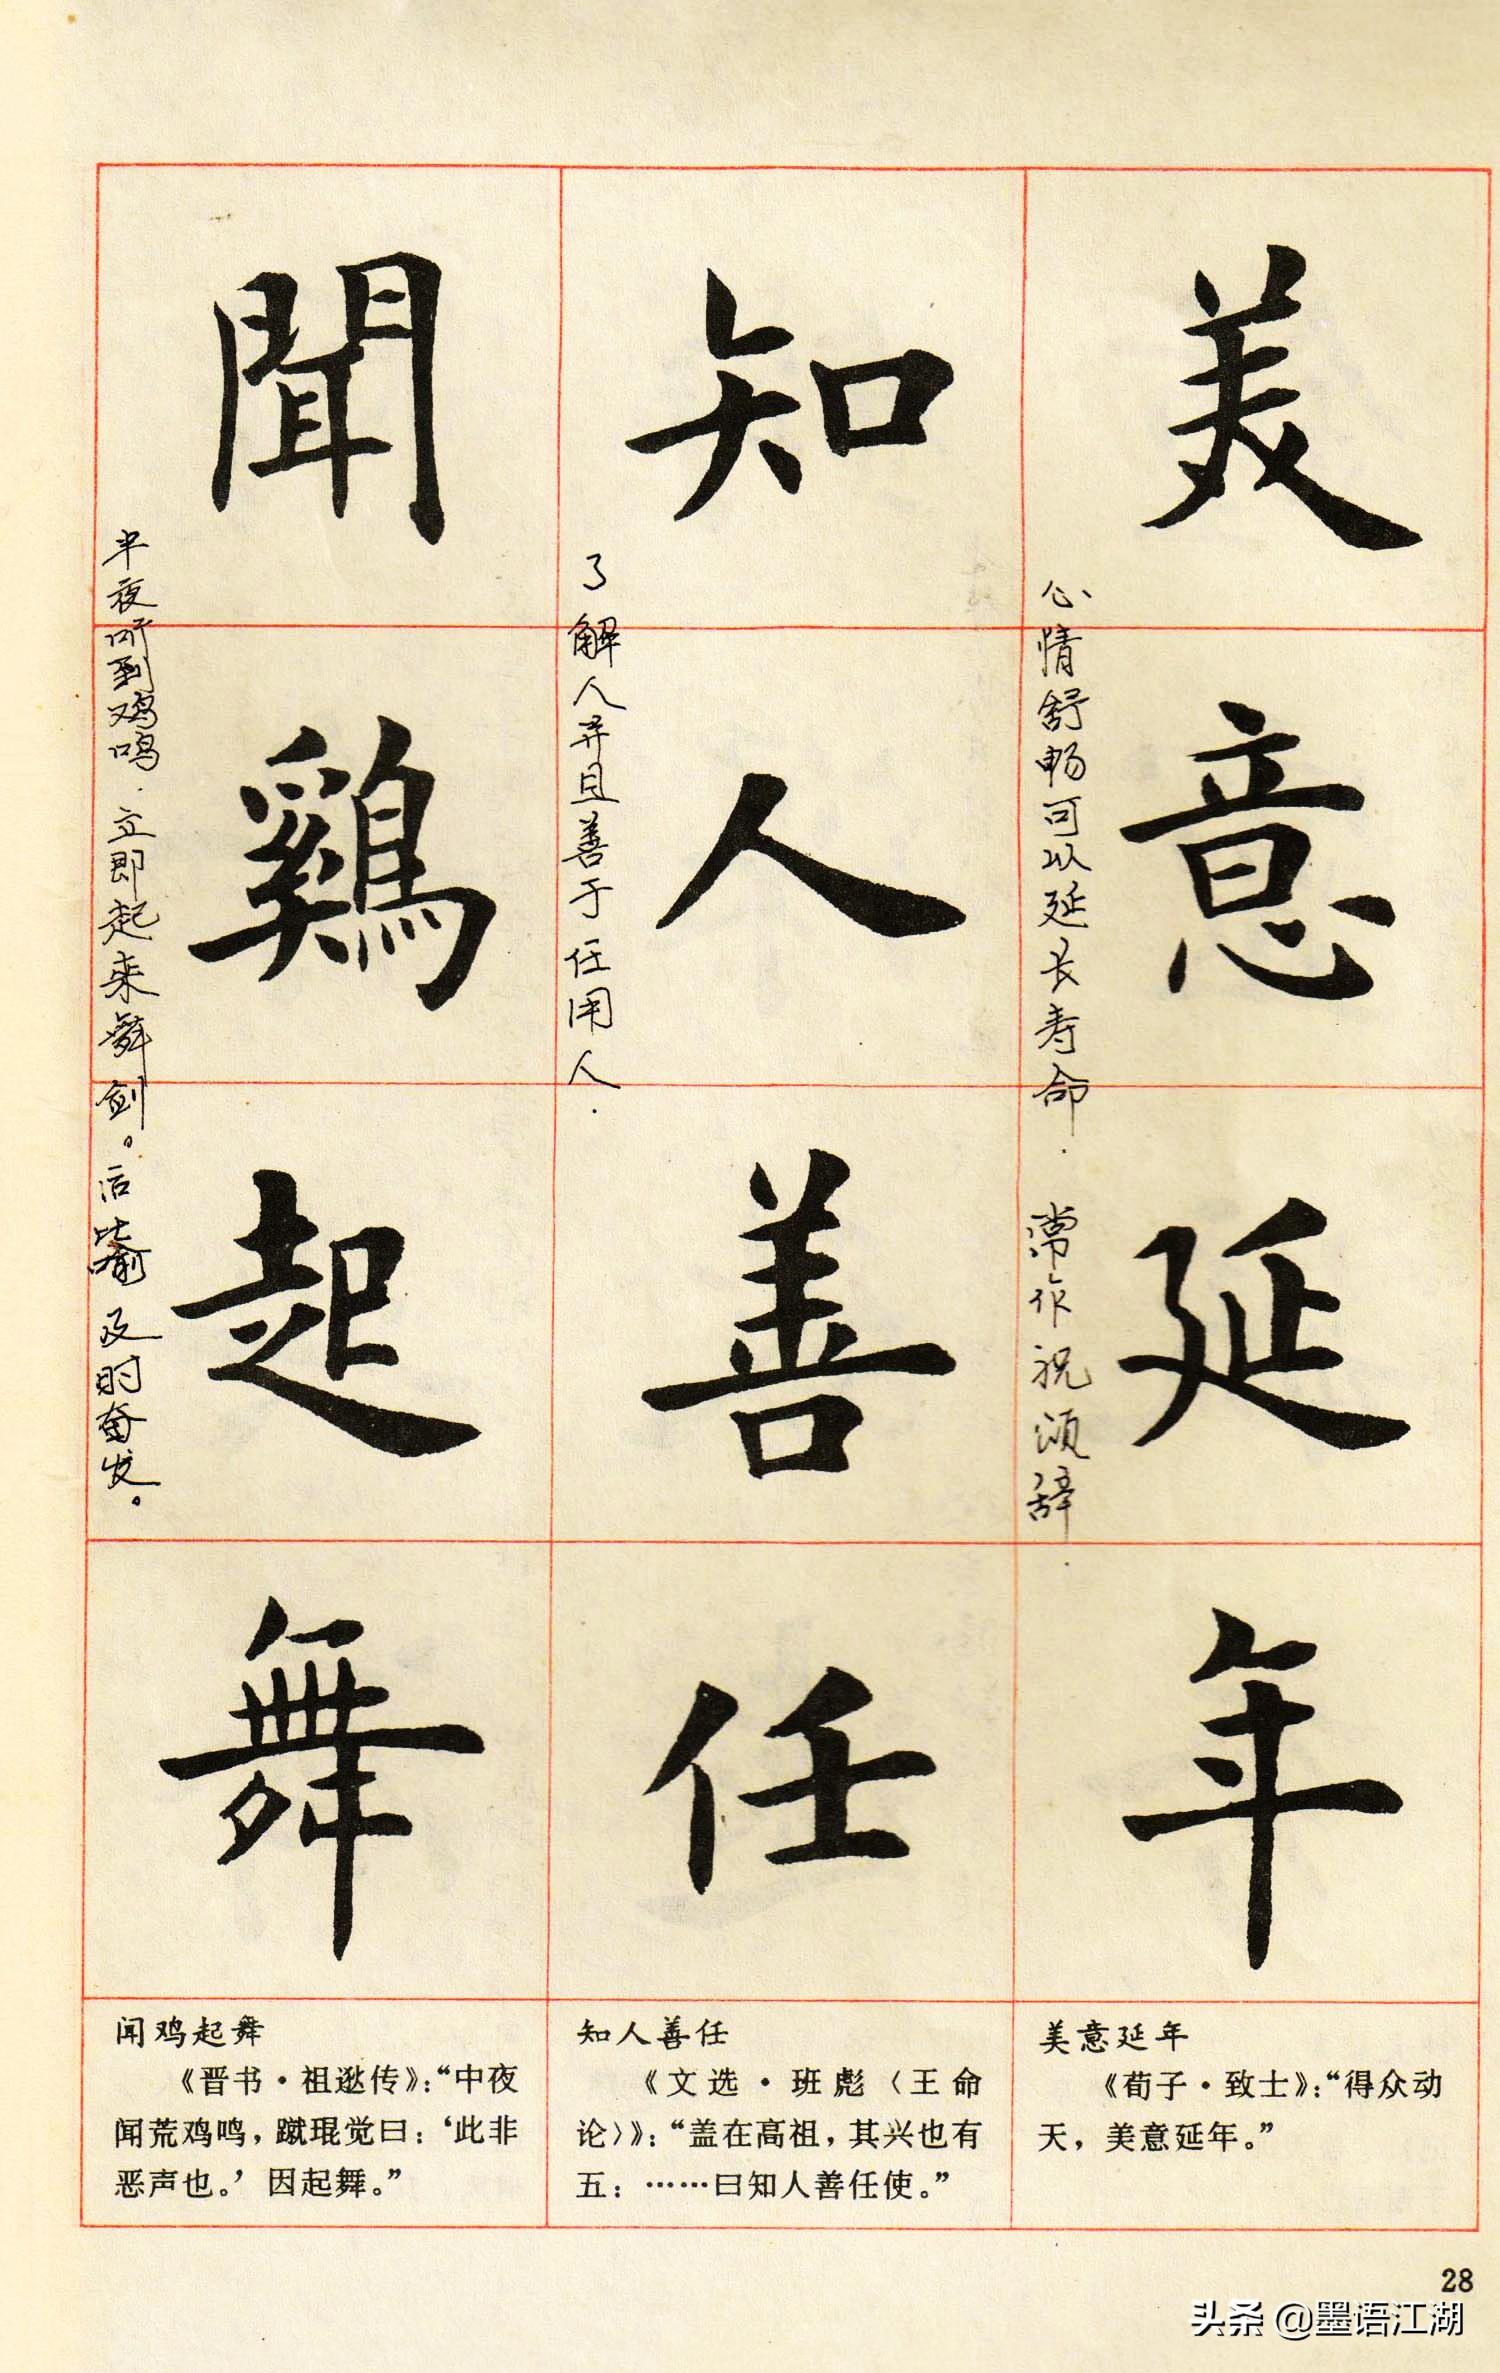 美意延年
心情舒畅可以延长寿命.常作祝颂辞.
知人善任
了解人并且善于任用人.
聞鷄起舞
半夜听到鸡鸣.立即起来舞剑。后比喻及时奋发。
美意延年
《荀子·致士》：“得众动
天，美意延年。”
知人善任
《文选·班彪〈王命
论〉》：“盖在高祖，其兴也有
五：……曰知人善任使。”
闻鸡起舞
《晋书·祖逖传》：“中夜
闻荒鸡鸣，蹴琨觉曰：‘此非
恶声也。’因起舞。”
28
头条 @墨语江湖